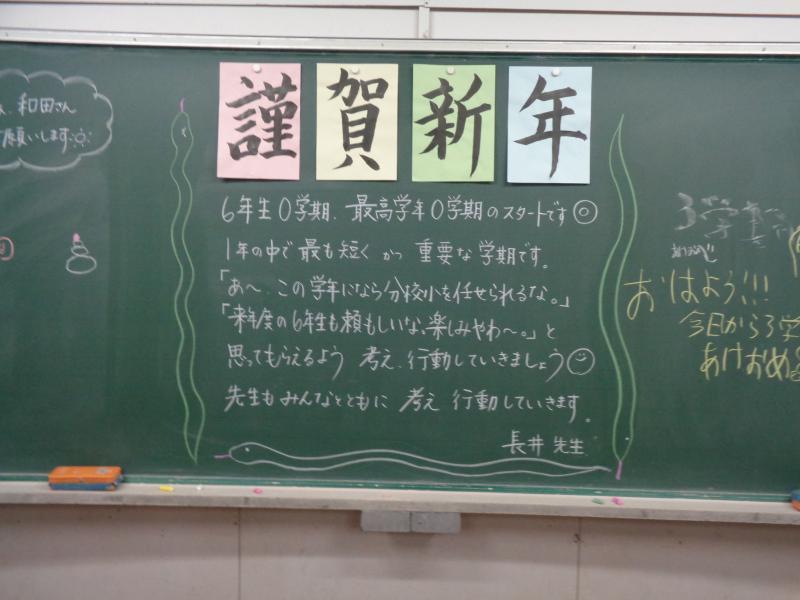 謹賀新年
6年生0学期、最高学年0学期のスタートです
1年の中で最も短くかつ重要な学期です。
「あ〜、この学年になら分校小を任せられるな。」
「来年度の6年生も頼もしいな、楽しみやわ〜。」と
思ってもらえるよう 考え、行動していきましょう
先生もみんなとともに 考え 行動していきます。
長井先生
和田さん
願いします
おはよう!!!
今日から3学
あけおめ